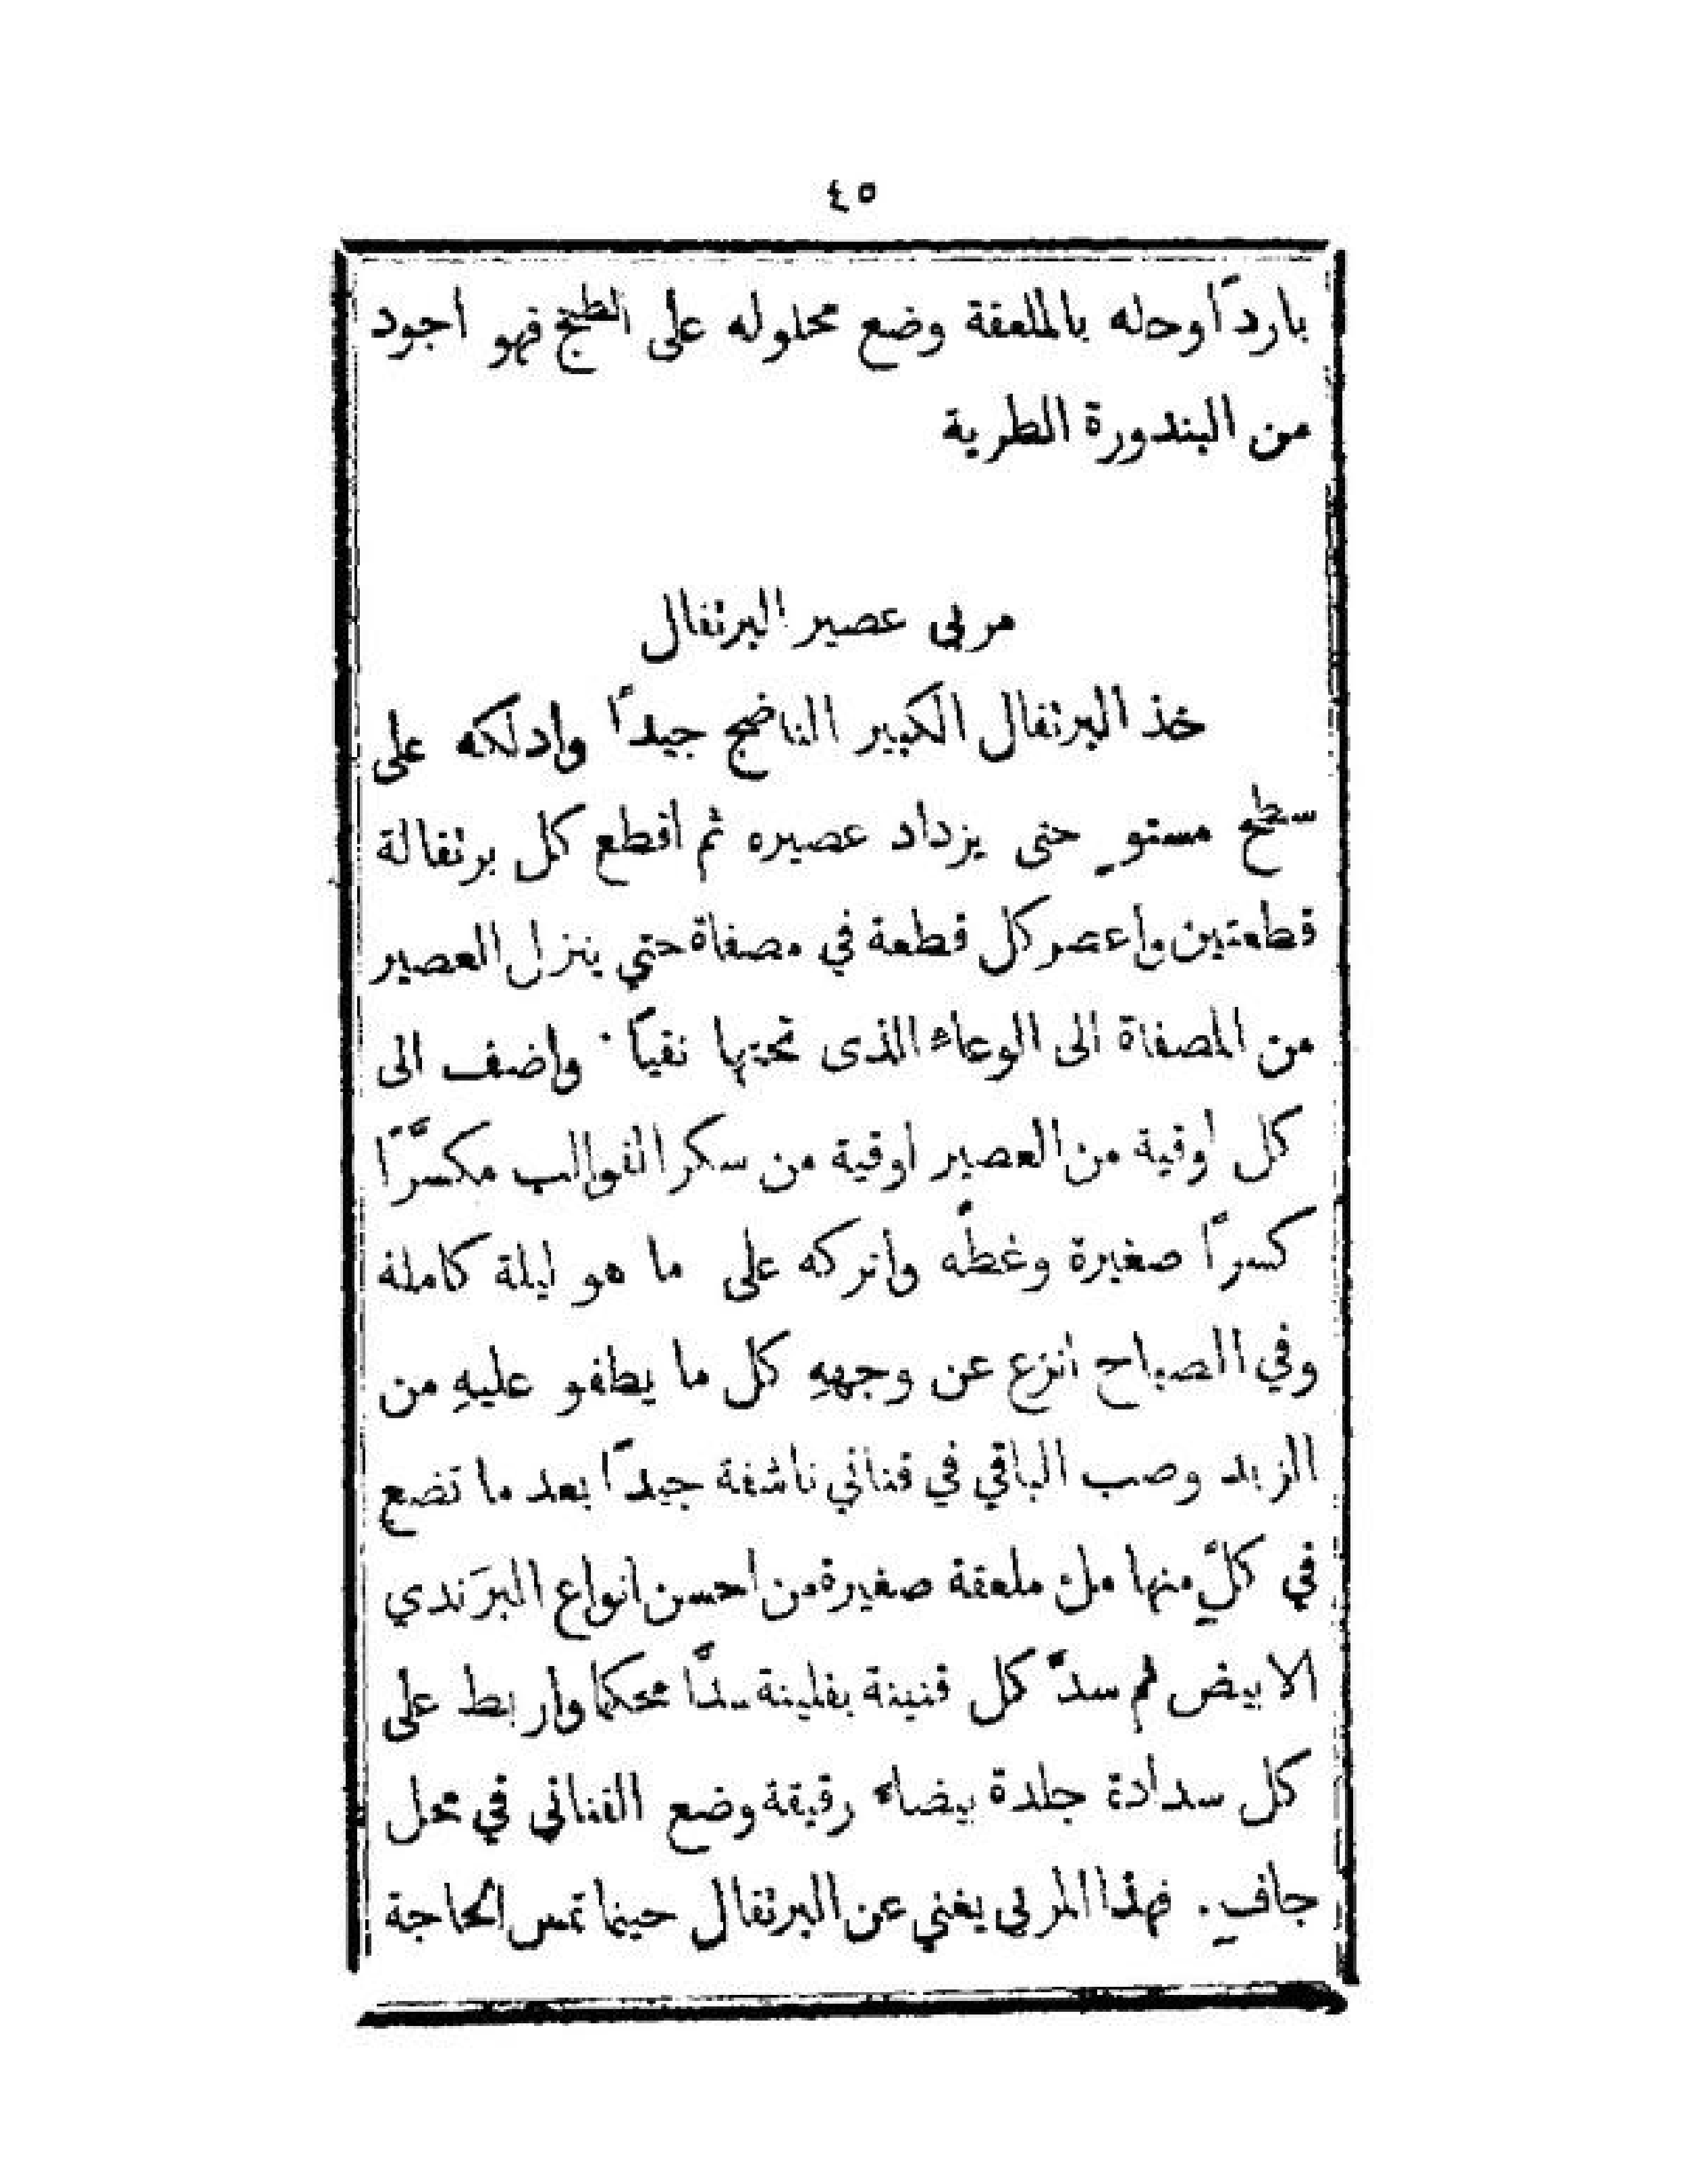 ٤٥
بارداً وحله بالملعقة وضع محلوله على الطبخ فهو اجود
من البندورة الطرية
مربى عصير البرتقال
خذ البرتقال الكبير الناضج جيداً وادلكه على
سطح مستوٍ حتى يزداد عصيره ثم اقطع كل برتقالة
قطعتين واعصر كل قطعة في مصفاة حتي ينزل العصير
من المصفاة الى الوعاء الذى تحتها نقياً ٠ واضف الى
كل اوقية من العصير اوقية من سكر القوالب مكسَّرًا
كسراً صغيرة وغطّه واتركه على ما هو ليلة كاملة
وفي الصباح انزع عن وجههِ كل ما يطفو عليهِ من
الزبد وصب الباقي في قناني ناشفة جيداً بعد ما تضع
في كلٍّ منها ملء ملعقة صغيرة من احسن انواع البرَندي
الابيض ثم سدَّ كل قنينة بفلينة سدًّا محكما واربط على
كل سدادة جلدة بيضاء رقيقة وضع القنانى في محل
جافٍ . فهذا المربى يغني عن البرتقال حينما تمس الحاجة